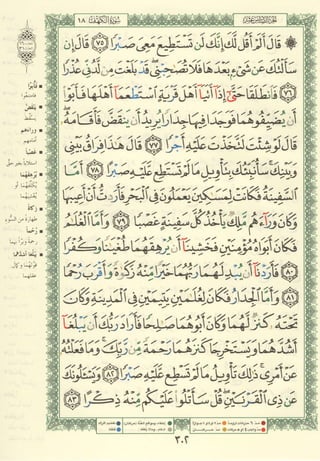 ١٨ سُورَةُ الكَهۡفِ
۞ قَالَ أَلَمۡ أَقُل لَّكَ إِنَّكَ لَن تَسۡتَطِيعَ مَعِيَ صَبۡرٗا ٧٥ قَالَ إِن
سَأَلۡتُكَ عَن شَيۡءِۭ بَعۡدَهَا فَلَا تُصَٰحِبۡنِيۖ قَدۡ بَلَغۡتَ مِن لَّدُنِّي عُذۡرٗا
٧٦ فَٱنطَلَقَا حَتَّىٰٓ إِذَآ أَتَيَآ أَهۡلَ قَرۡيَةٍ ٱسۡتَطۡعَمَآ أَهۡلَهَا فَأَبَوۡاْ
أَن يُضَيِّفُوهُمَا فَوَجَدَا فِيهَا جِدَارٗا يُرِيدُ أَن يَنقَضَّ فَأَقَامَهُۥۖ
قَالَ لَوۡ شِئۡتَ لَتَّخَذۡتَ عَلَيۡهِ أَجۡرٗا ٧٧ قَالَ هَٰذَا فِرَاقُ بَيۡنِي
وَبَيۡنِكَۚ سَأُنَبِّئُكَ بِتَأۡوِيلِ مَا لَمۡ تَسۡتَطِع عَّلَيۡهِ صَبۡرًا ٧٨ أَمَّا
ٱلسَّفِينَةُ فَكَانَتۡ لِمَسَٰكِينَ يَعۡمَلُونَ فِي ٱلۡبَحۡرِ فَأَرَدتُّ أَنۡ أَعِيبَهَا
وَكَانَ وَرَآءَهُم مَّلِكٞ يَأۡخُذُ كُلَّ سَفِينَةٍ غَصۡبٗا ٧٩ وَأَمَّا ٱلۡغُلَٰمُ
فَكَانَ أَبَوَاهُ مُؤۡمِنَيۡنِ فَخَشِينَآ أَن يُرۡهِقَهُمَا طُغۡيَٰنٗا وَكُفۡرٗا
٨٠ فَأَرَدۡنَآ أَن يُبۡدِلَهُمَا رَبُّهُمَا خَيۡرٗا مِّنۡهُ زَكَوٰةٗ وَأَقۡرَبَ رُحۡمٗا
٨١ وَأَمَّا ٱلۡجِدَارُ فَكَانَ لِغُلَٰمَيۡنِ يَتِيمَيۡنِ فِي ٱلۡمَدِينَةِ وَكَانَ
تَحۡتَهُۥ كَنزٞ لَّهُمَا وَكَانَ أَبُوهُمَا صَٰلِحٗا فَأَرَادَ رَبُّكَ أَن يَبۡلُغَآ
أَشُدَّهُمَا وَيَسۡتَخۡرِجَا كَنزَهُمَا رَحۡمَةٗ مِّن رَّبِّكَۚ وَمَا فَعَلۡتُهُۥ
عَنۡ أَمۡرِيۚ ذَٰلِكَ تَأۡوِيلُ مَا لَمۡ تَسۡطِع عَّلَيۡهِ صَبۡرٗا ٨٢ وَيَسۡـَٔلُونَكَ
عَن ذِي ٱلۡقَرۡنَيۡنِۖ قُلۡ سَأَتۡلُواْ عَلَيۡكُم مِّنۡهُ ذِكۡرًا ٨٣
٣٠٢